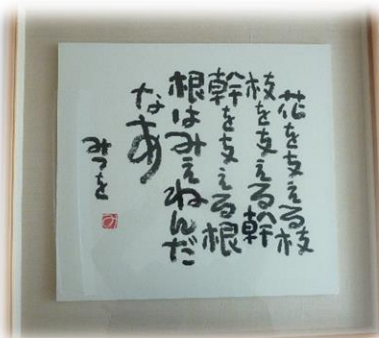 花を支える枝
枝を支える幹
幹を支える根
根はみえねんだ
なあ
みつを